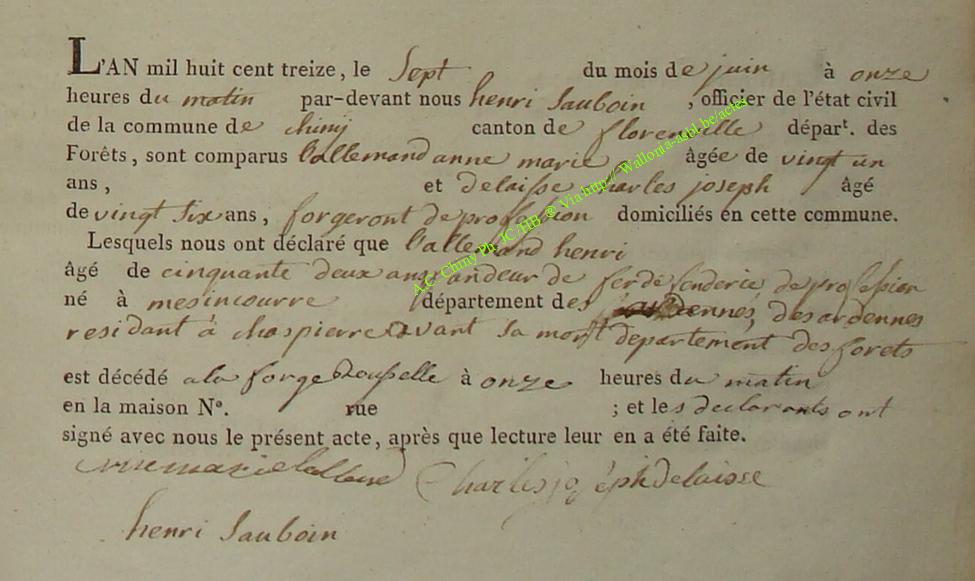 L'AN mil huit cent treize, le Sept du mois de juin à onze
heures du matin par-devant nous henri Sauboin , officier de l'état civil
de la commune de chinÿ canton de florenville départ. des
Forêts, sont comparus l'allemand anne marie âgée de vingt un
ans, et delaisse charles joseph âgé
de vingt six ans, forgeront de profession domiciliés en cette commune.
Lesquels nous ont déclaré que l'allemand henri
âgé de cinquante deux ans andeur de fer de fonderie de profession
né à mesincourre département des ardennes, des ardennes
residant à chaspierre avant sa mort departement des forets
est décédé a la forge Rousselle à onze heures du matin
en la maison N°. rue ; et les declarants ont
signé avec nous le présent acte, après que lecture leur en a été faite.
anne marie lallemend Charles joséph delaisse
henri Sauboin
A.C. Chiny Ph. JC/HB ® Via http://Wallonia-asbl.be/actes